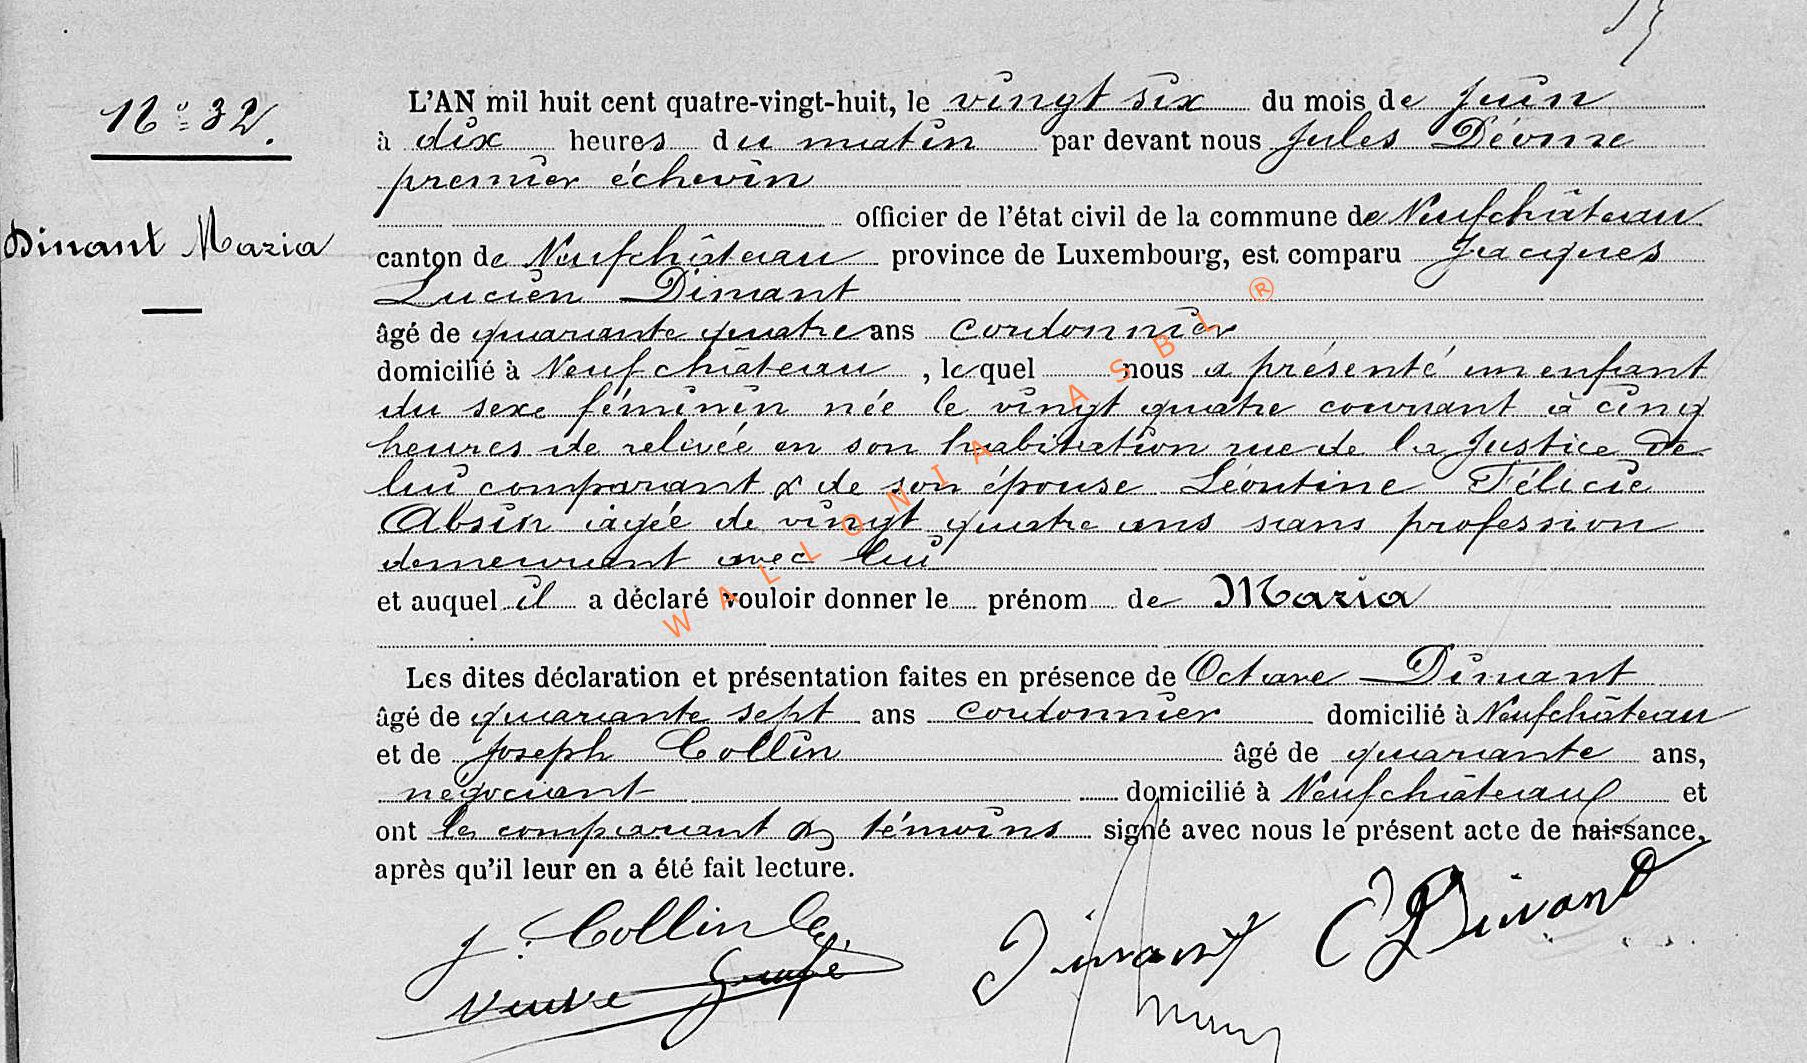 N° 32.
Dinant Maria
L'AN mil huit cent quatre-vingt-huit, le vingt six du mois de juin
à dix heures du matin par devant nous Jules
premier échevin
officier de l'état civil de la commune de Neufchâteau
canton de Neufchâteau province de Luxembourg, est comparu Jacques
Lucien Dinant
âgé de quarante quatre ans cordonnier
domicilié à Neufchâteau, lequel nous a présenté un enfant
du sexe féminin née le vingt quatre courant à cinq
heures de relevée en son habitation rue de la Justice de
lui comparant & de son épouse Léontine Félicie
Absin âgée de vingt quatre ans sans profession
demeurant avec lui
et auquel il a déclaré vouloir donner le prénom de Maria
Les dites déclaration et présentation faites en présence de Octave Dinant
âgé de quarante sept ans cordonnier domicilié à Neufchâteau
et de Joseph Collin âgé de quarante ans,
négociant domicilié à Neufchâteau et
ont les comparant & témoins signé avec nous le présent acte de naissance,
après qu'il leur en a été fait lecture.
J. Collin
Dinant
O Dinant
WALLONIA ASBL ®